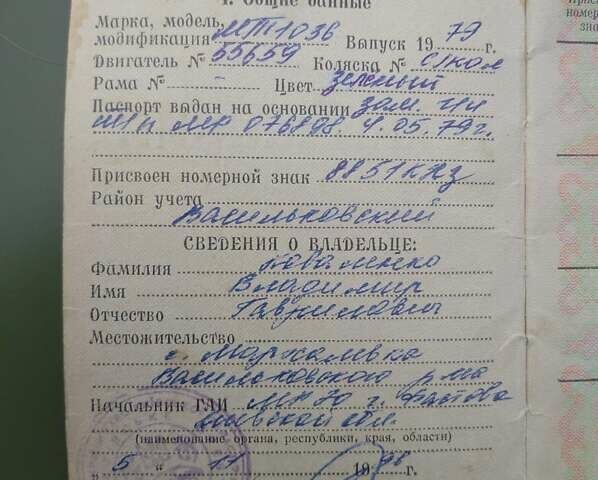 1. Общие данные
Марка, модель,
модификация МТ 1036 Выпуск 1979 г.
Двигатель № 55659 Коляска № С/кол
Рама № - Цвет зеленый
Паспорт выдан на основании зам.
МР 076898. 4.05.79г.
Присвоен номерной знак 8851ККЗ
Район учета
Васильковский
СВЕДЕНИЯ О ВЛАДЕЛЬЦЕ:
Фамилия Коваленко
Имя Владимир
Отчество Гаврилович
Местожительство
с. Мархалевка
Васильковского р-на
Начальник ГАИ г. Фастова
обл.
(наименование органа, республики, края, области)
„5“ 11 19 г.